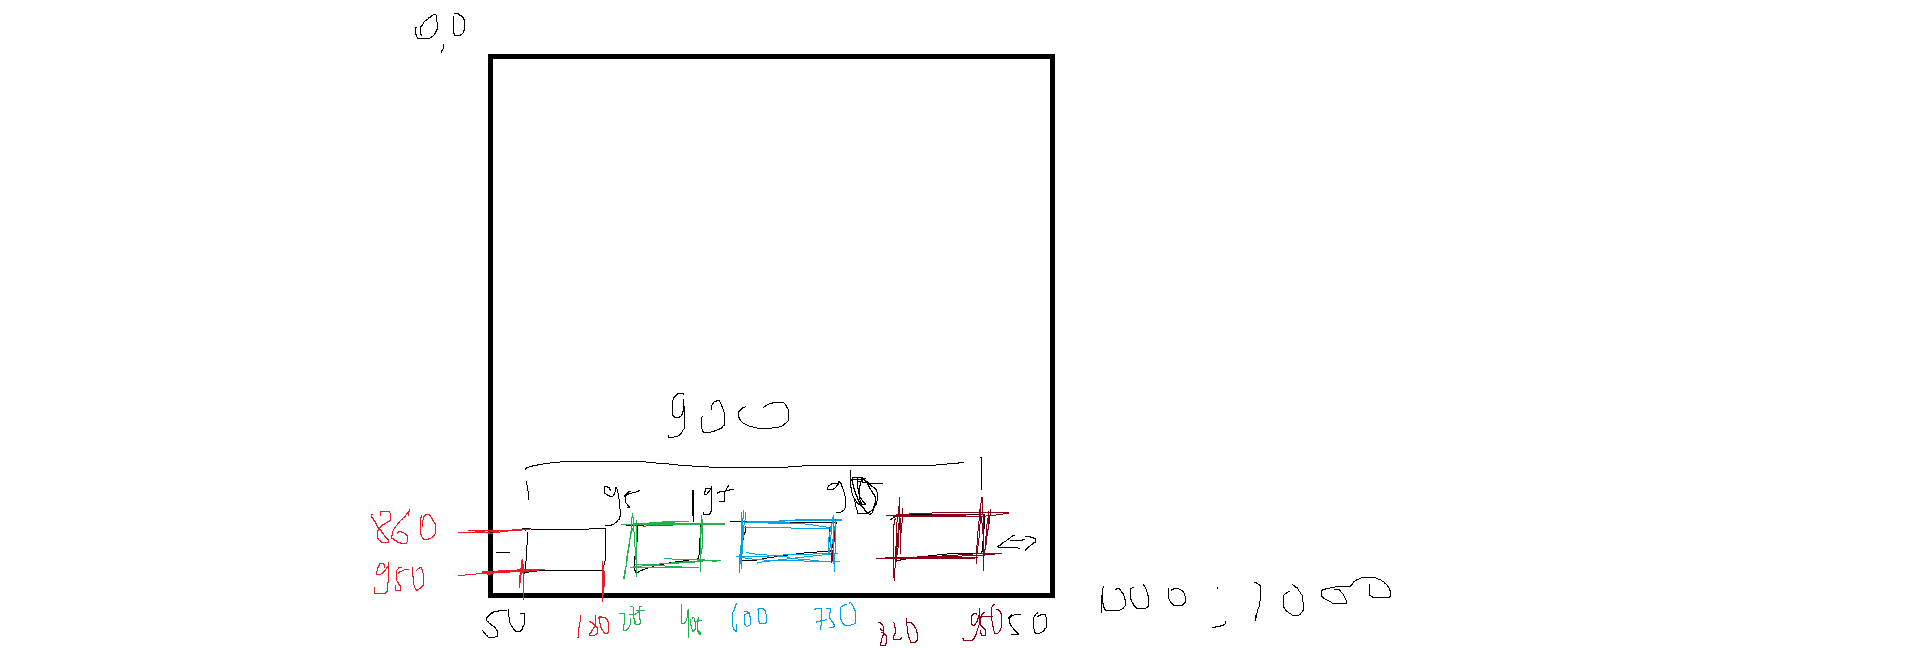 0,0
900
95 195 90
860
950
50 180 275 405 600 730 820 950 50
1000 ; 1000